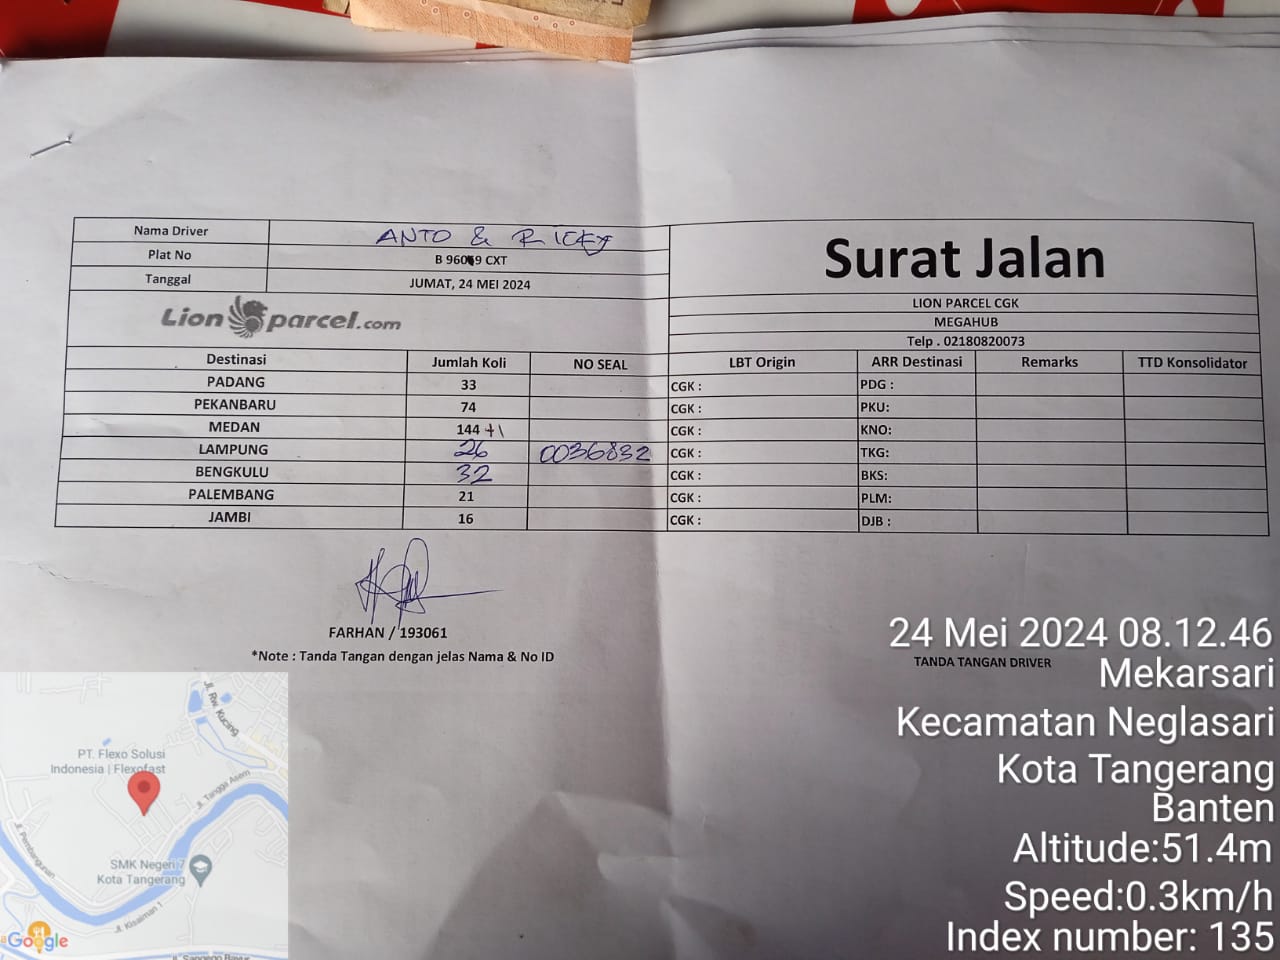 Nama Driver ANTO & RICKY
Plat No B 9609 CXT
Tanggal JUMAT, 24 MEI 2024
Surat Jalan
LION PARCEL CGK
MEGAHUB
Telp . 02180820073
Lion parcel.com
Destinasi Jumlah Koli NO SEAL LBT Origin ARR Destinasi Remarks TTD Konsolidator
PADANG 33 CGK : PDG :
PEKANBARU 74 CGK : PKU:
MEDAN 144 +1 CGK : KNO:
LAMPUNG 26 0036832 CGK : TKG:
BENGKULU 32 CGK : BKS:
PALEMBANG 21 CGK : PLM:
JAMBI 16 CGK : DJB :
FARHAN / 193061
*Note : Tanda Tangan dengan jelas Nama & No ID
TANDA TANGAN DRIVER
24 Mei 2024 08.12.46
Mekarsari
Kecamatan Neglasari
Kota Tangerang
Banten
Altitude:51.4m
Speed:0.3km/h
Index number: 135
Jl. Rw. Kucing
PT. Flexo Solusi
Indonesia | Flexofast
Jl. Tangga Asem
Jl. Pembangunan
SMK Negeri 7
Kota Tangerang
Jl. Kisaiman 1
Google